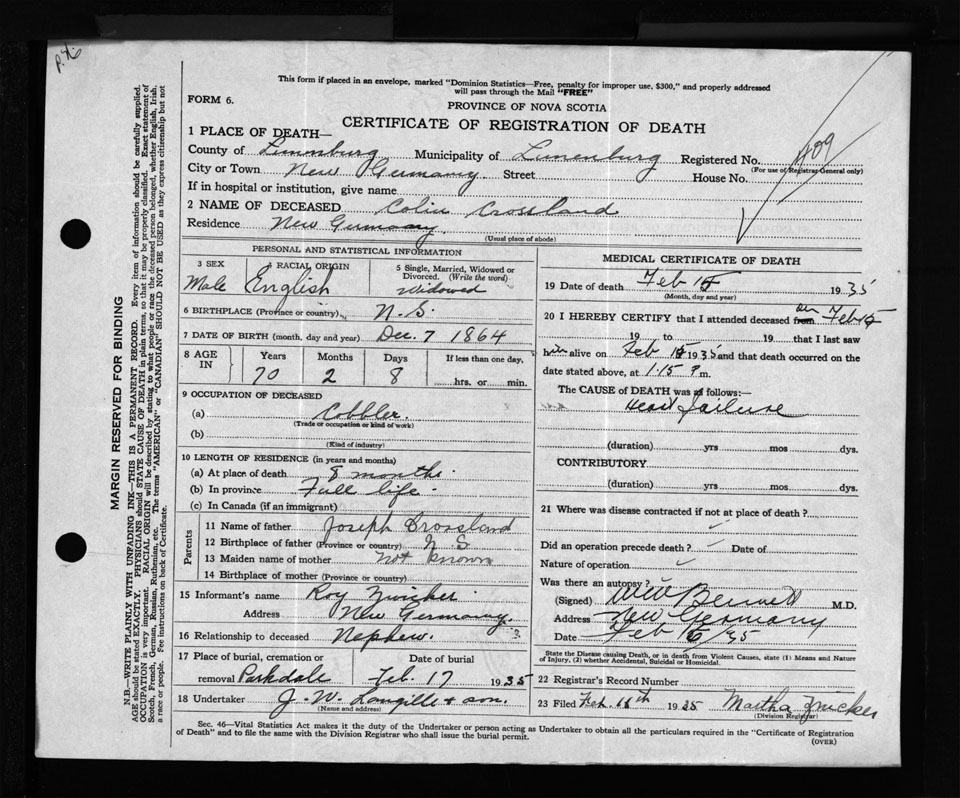 P.46
This form if placed in an envelope, marked "Dominion Statistics—Free, penalty for improper use, $300," and properly addressed
will pass through the Mail "FREE"
FORM 6.
PROVINCE OF NOVA SCOTIA
CERTIFICATE OF REGISTRATION OF DEATH
1 PLACE OF DEATH—
County of Lunenburg Municipality of Lunenburg Registered No. 409
(For use of Registrar General only)
City or Town New Germany Street House No.
If in hospital or institution, give name
2 NAME OF DECEASED Colin Crossland
Residence New Germany
(Usual place of abode)
PERSONAL AND STATISTICAL INFORMATION
3 SEX
Male
4 RACIAL ORIGIN
English
5 Single, Married, Widowed or
Divorced. (Write the word)
Widowed
6 BIRTHPLACE (Province or country) N.S.
7 DATE OF BIRTH (month, day and year) Dec. 7 1864
8 AGE
IN
Years Months Days If less than one day,
70 2 8 hrs. or min.
9 OCCUPATION OF DECEASED
(a) Cobbler.
(Trade or occupation or kind of work)
(b)
(Kind of industry)
10 LENGTH OF RESIDENCE (in years and months)
(a) At place of death 8 months.
(b) In province Full life.
(c) In Canada (if an immigrant)
Parents
11 Name of father Joseph Crossland
12 Birthplace of father (Province or country) N S
13 Maiden name of mother Not known
14 Birthplace of mother (Province or country)
15 Informant's name Roy Zwicker
Address New Germany.
16 Relationship to deceased Nephew.
17 Place of burial, cremation or Date of burial
removal Parkdale Feb. 17 1935
18 Undertaker J. W. Langille & son.
(Name and address)
MEDICAL CERTIFICATE OF DEATH
19 Date of death Feb 15 1935
(Month, day and year)
20 I HEREBY CERTIFY that I attended deceased from on Feb 15
19 to 19 that I last saw
him alive on Feb 15 1935 and that death occurred on the
date stated above, at 1.15 P m.
The CAUSE OF DEATH was as follows:—
Heart failure
(duration) yrs mos dys.
CONTRIBUTORY
(duration) yrs mos dys.
21 Where was disease contracted if not at place of death?
Did an operation precede death? Date of
Nature of operation
Was there an autopsy?
(Signed) Bennett M.D.
Address New Germany
Date Feb 16/35
State the Disease causing Death, or in death from Violent Causes, state (1) Means and Nature
of Injury, (2) whether Accidental, Suicidal or Homicidal.
22 Registrar's Record Number
23 Filed Feb. 16th 1935 Martha Zwicker
(Division Registrar)
Sec. 46—Vital Statistics Act makes it the duty of the Undertaker or person acting as Undertaker to obtain all the particulars required in the "Certificate of Registration
of Death" and to file the same with the Division Registrar who shall issue the burial permit.
(OVER)
MARGIN RESERVED FOR BINDING
N.B.—WRITE PLAINLY WITH UNFADING INK—THIS IS A PERMANENT RECORD. Every item of information should be carefully supplied.
AGE should be stated EXACTLY. PHYSICIANS should STATE CAUSE OF DEATH in plain terms, so that it may be properly classified. Exact statement of
OCCUPATION is very important. RACIAL ORIGIN will be described by stating to what people or race the deceased person belonged, whether English, Irish,
Scotch, French, German, Russian, Ruthenian, etc. The terms "AMERICAN" or "CANADIAN" SHOULD NOT BE USED as they express citizenship but not
a race or people. See instructions on back of Certificate.